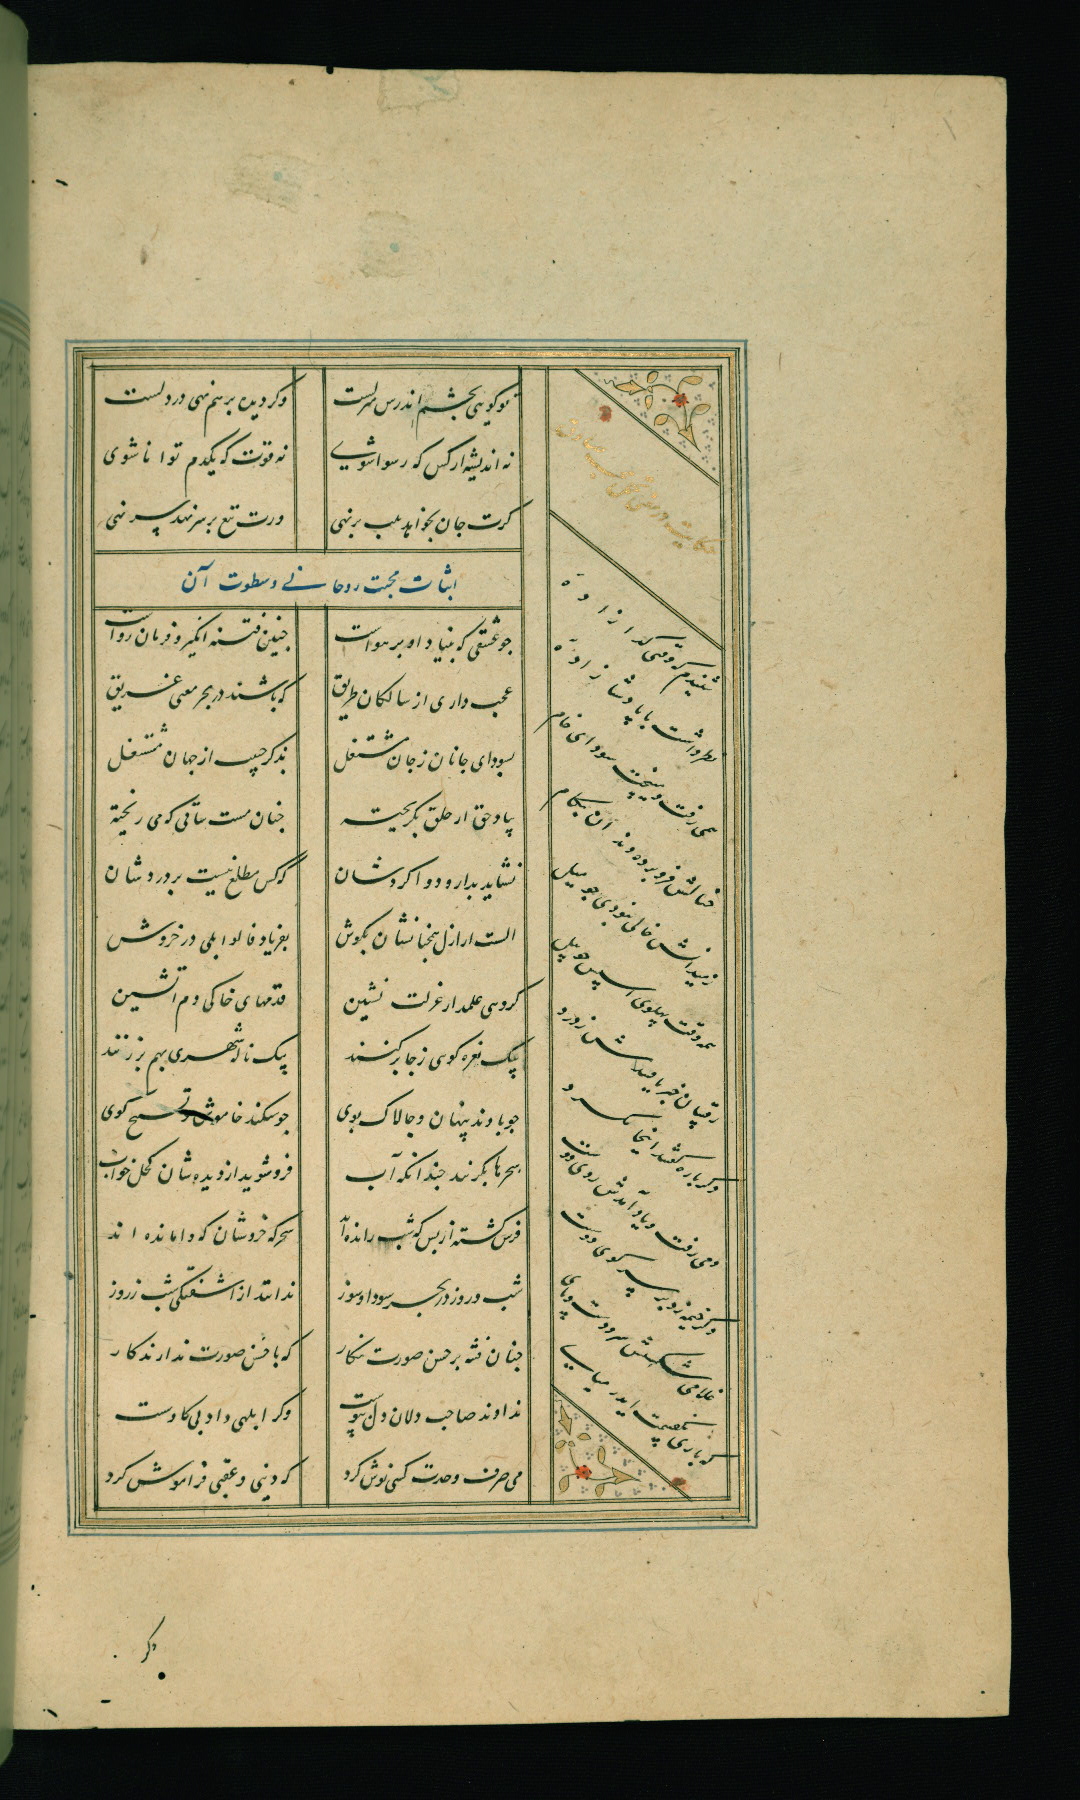 تو گویی بچشم اندرش منزلست وگر دیده بر هم نهی در دلست
نه اندیشه از کس که رسوا شوی نه قوت که یکدم توانا شوی
گرت جان بخواهد بلب برنهی ورت تیغ بر سر نهد سر نهی
اثبات محبت روحانی و سطوت آن
چو عشقی که بنیاد او بر هواست چنین فتنه انگیز و فرمان رواست
عجب داری از سالکان طریق که باشند در بحر معنی غریق
بسودای جانان ز جان مشتغل بذکر حبیب از جهان مشتغل
بیاد حق از خلق بگریخته چنان مست ساقی که می ریخته
نشاید بدارو دوا کردشان که کس مطلع نیست بر دردشان
الست از ازل همچنانشان بگوش بفریاد قالوا بلی در خروش
گروهی علمدار عزلت نشین قدمهای خاکی دم آتشین
بیک نعره کوهی ز جا برکنند بیک ناله شهری بهم برزنند
چو بادند پنهان و چالاک پوی چو سنگند خاموش و تسبیح گوی
سحرها بگریند چندانکه آب فرو شوید از دیده شان کحل خواب
فرس کشته از بس که شب رانده اند سحرگه خروشان که وامانده اند
شب و روز در بحر سودا و سوز ندانند از آشفتگی شب ز روز
چنان فتنه بر حسن صورت نگار که با حسن صورت ندارند کار
ندادند صاحب دلان دل بپوست وگر ابلهی داد بی مغز اوست
می صرف وحدت کسی نوش کرد که دنیی و عقبی فراموش کرد
شنیدم که وقتی گدازاده
نظر داشت با پادشازاده
همی رفت و می پخت سودای خام
خیالش فرو برده دندان بکام
ز میدانش خالی نبودی چو میل
همه وقت پهلوی اسپش چو پیل
رقیبان خبر یافتندش ز درد
دگر باره گفتند اینجا مگرد
دمی رفت و یاد آمدش روی دوست
دگر خیمه زد بر سر کوی دوست
غلامی شکستش سر و دست و پای
که باری نگفتیمت ایدر میای
دگر